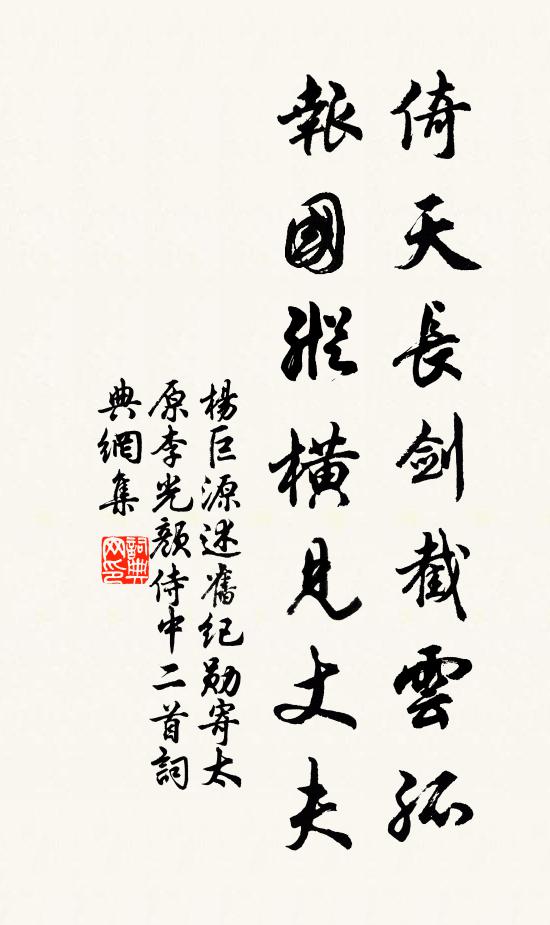 倚天長劍截雲孤
報國縱橫見丈夫
楊巨源述舊紀勛寄太
原李光顏侍中二首詞
典網集
詞典
网印